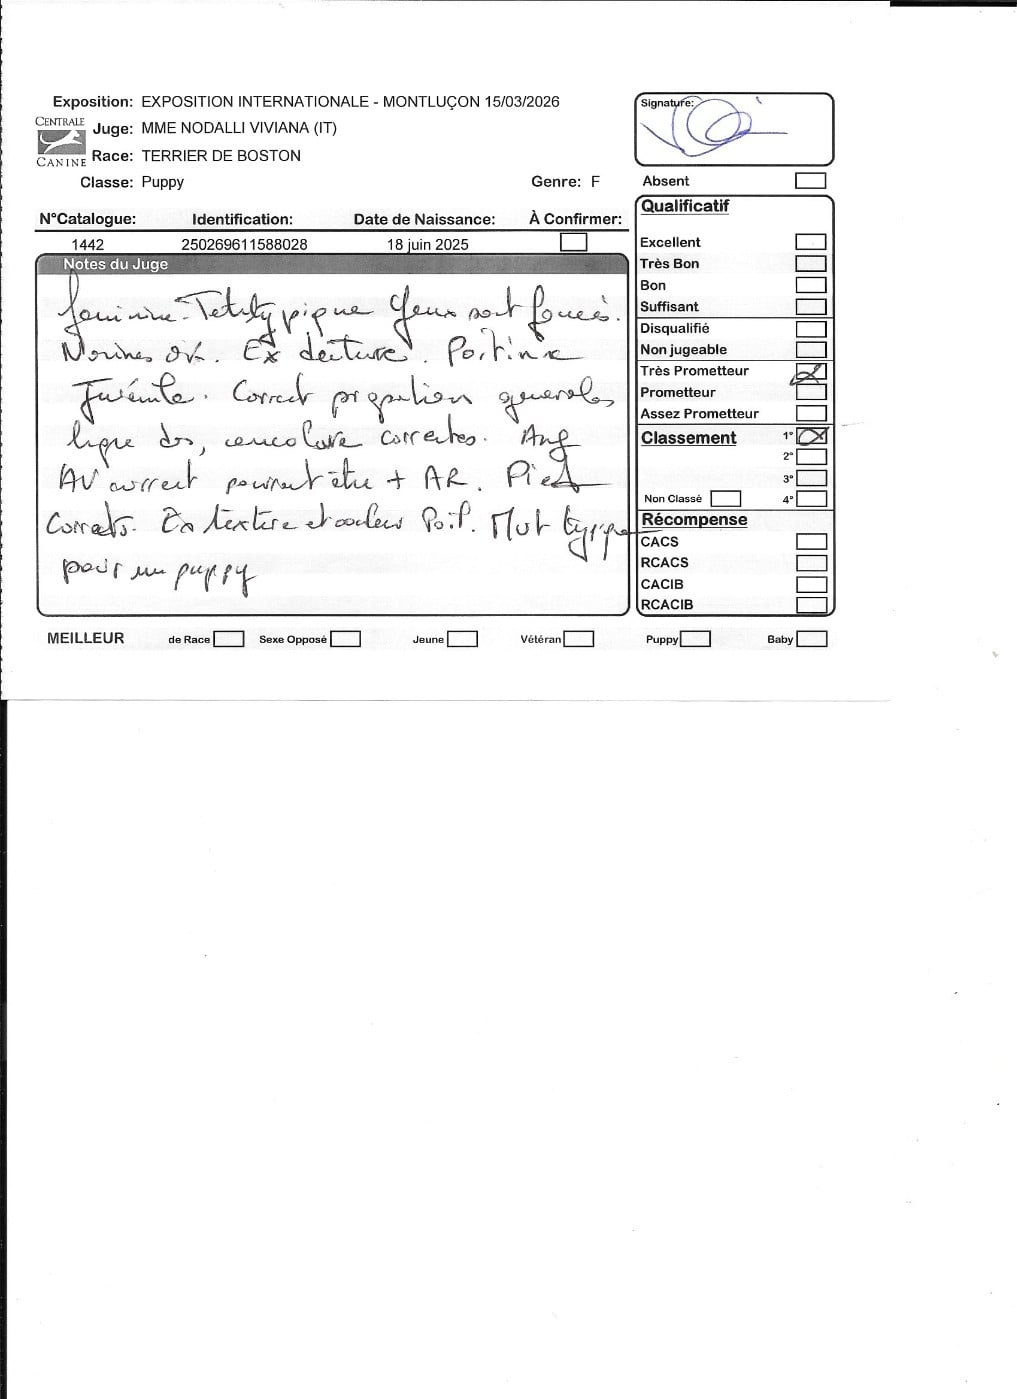 Exposition: EXPOSITION INTERNATIONALE - MONTLUÇON 15/03/2026
CENTRALE CANINE
Juge: MME NODALLI VIVIANA (IT)
Race: TERRIER DE BOSTON
Classe: Puppy Genre: F
N°Catalogue: Identification: Date de Naissance: À Confirmer:
1442 250269611588028 18 juin 2025
Notes du Juge
feminine - Tete typique Yeux sont foncés.
Narines ok. Ex denture. Poitrine
Juvénile. Correct proportion generales,
ligne dos, encolure correctes. Ang
AV correct pourrait être + AR. Pied
Corrects. Ex texture et couleur Poil. Mvt typique
pour un puppy
Signature:
Absent
Qualificatif
Excellent
Très Bon
Bon
Suffisant
Disqualifié
Non jugeable
Très Prometteur
Prometteur
Assez Prometteur
Classement 1°
2°
3°
Non Classé 4°
Récompense
CACS
RCACS
CACIB
RCACIB
MEILLEUR de Race Sexe Opposé Jeune Vétéran Puppy Baby